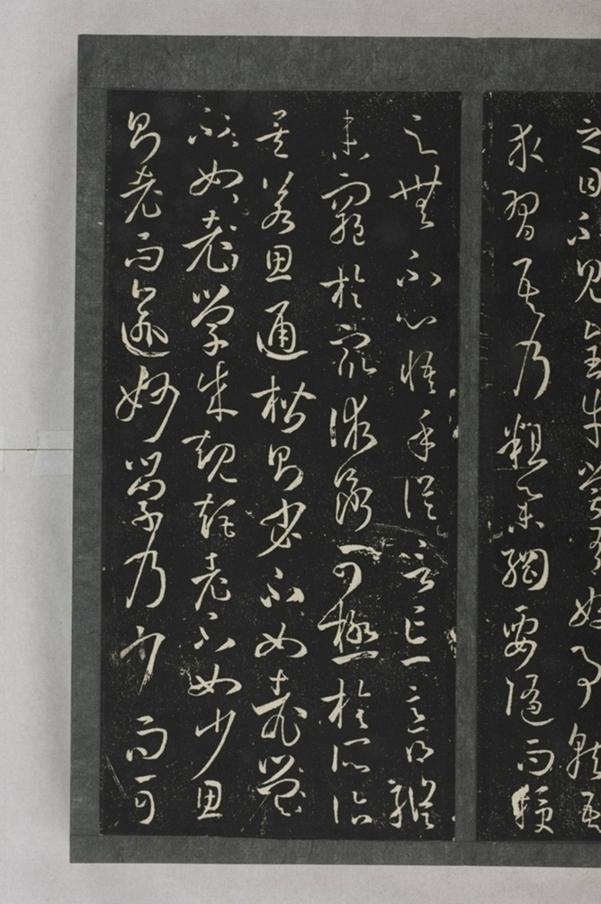 之目不見全牛嘗有好事就吾
求習吾乃粗舉綱要隨而授
之無不心悟手從言忘意得縱
未窮於眾術斷可極於所詣
矣若思通楷則少不如老學
不如老學成規矩老不如少思
則老而逾妙學乃少而可